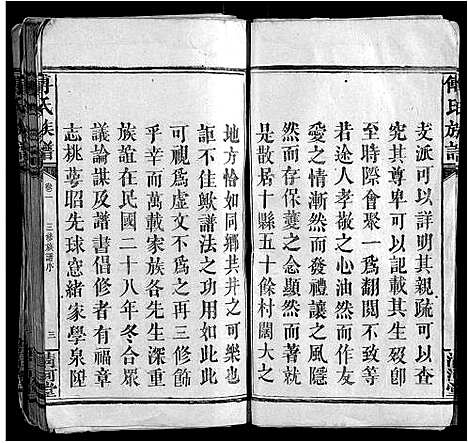 支派可以詳明其親疏可以查
究其尊卑可以了然其生殁卽
時際會聚一爲翻閱不致
若途人孝敬之心油然而作
愛之情㵀然而發禮讓之風隱
然而存葆愛之念隱然
是散居十縣五十餘村闊大之
地方恰如同鄉共井之可樂也
詎不佳歟譜法之功用如此此
可視爲虛文不爲之再三修飾
而千萬載家族各先生深重
族誼在民國二十八年冬合眾
議論謀及譜書倡修者有福章
志桃夢昭先球窓緒家學泉陞
傅氏族譜
卷一
三修族譜序
三
清河堂
傅氏族譜
清河堂